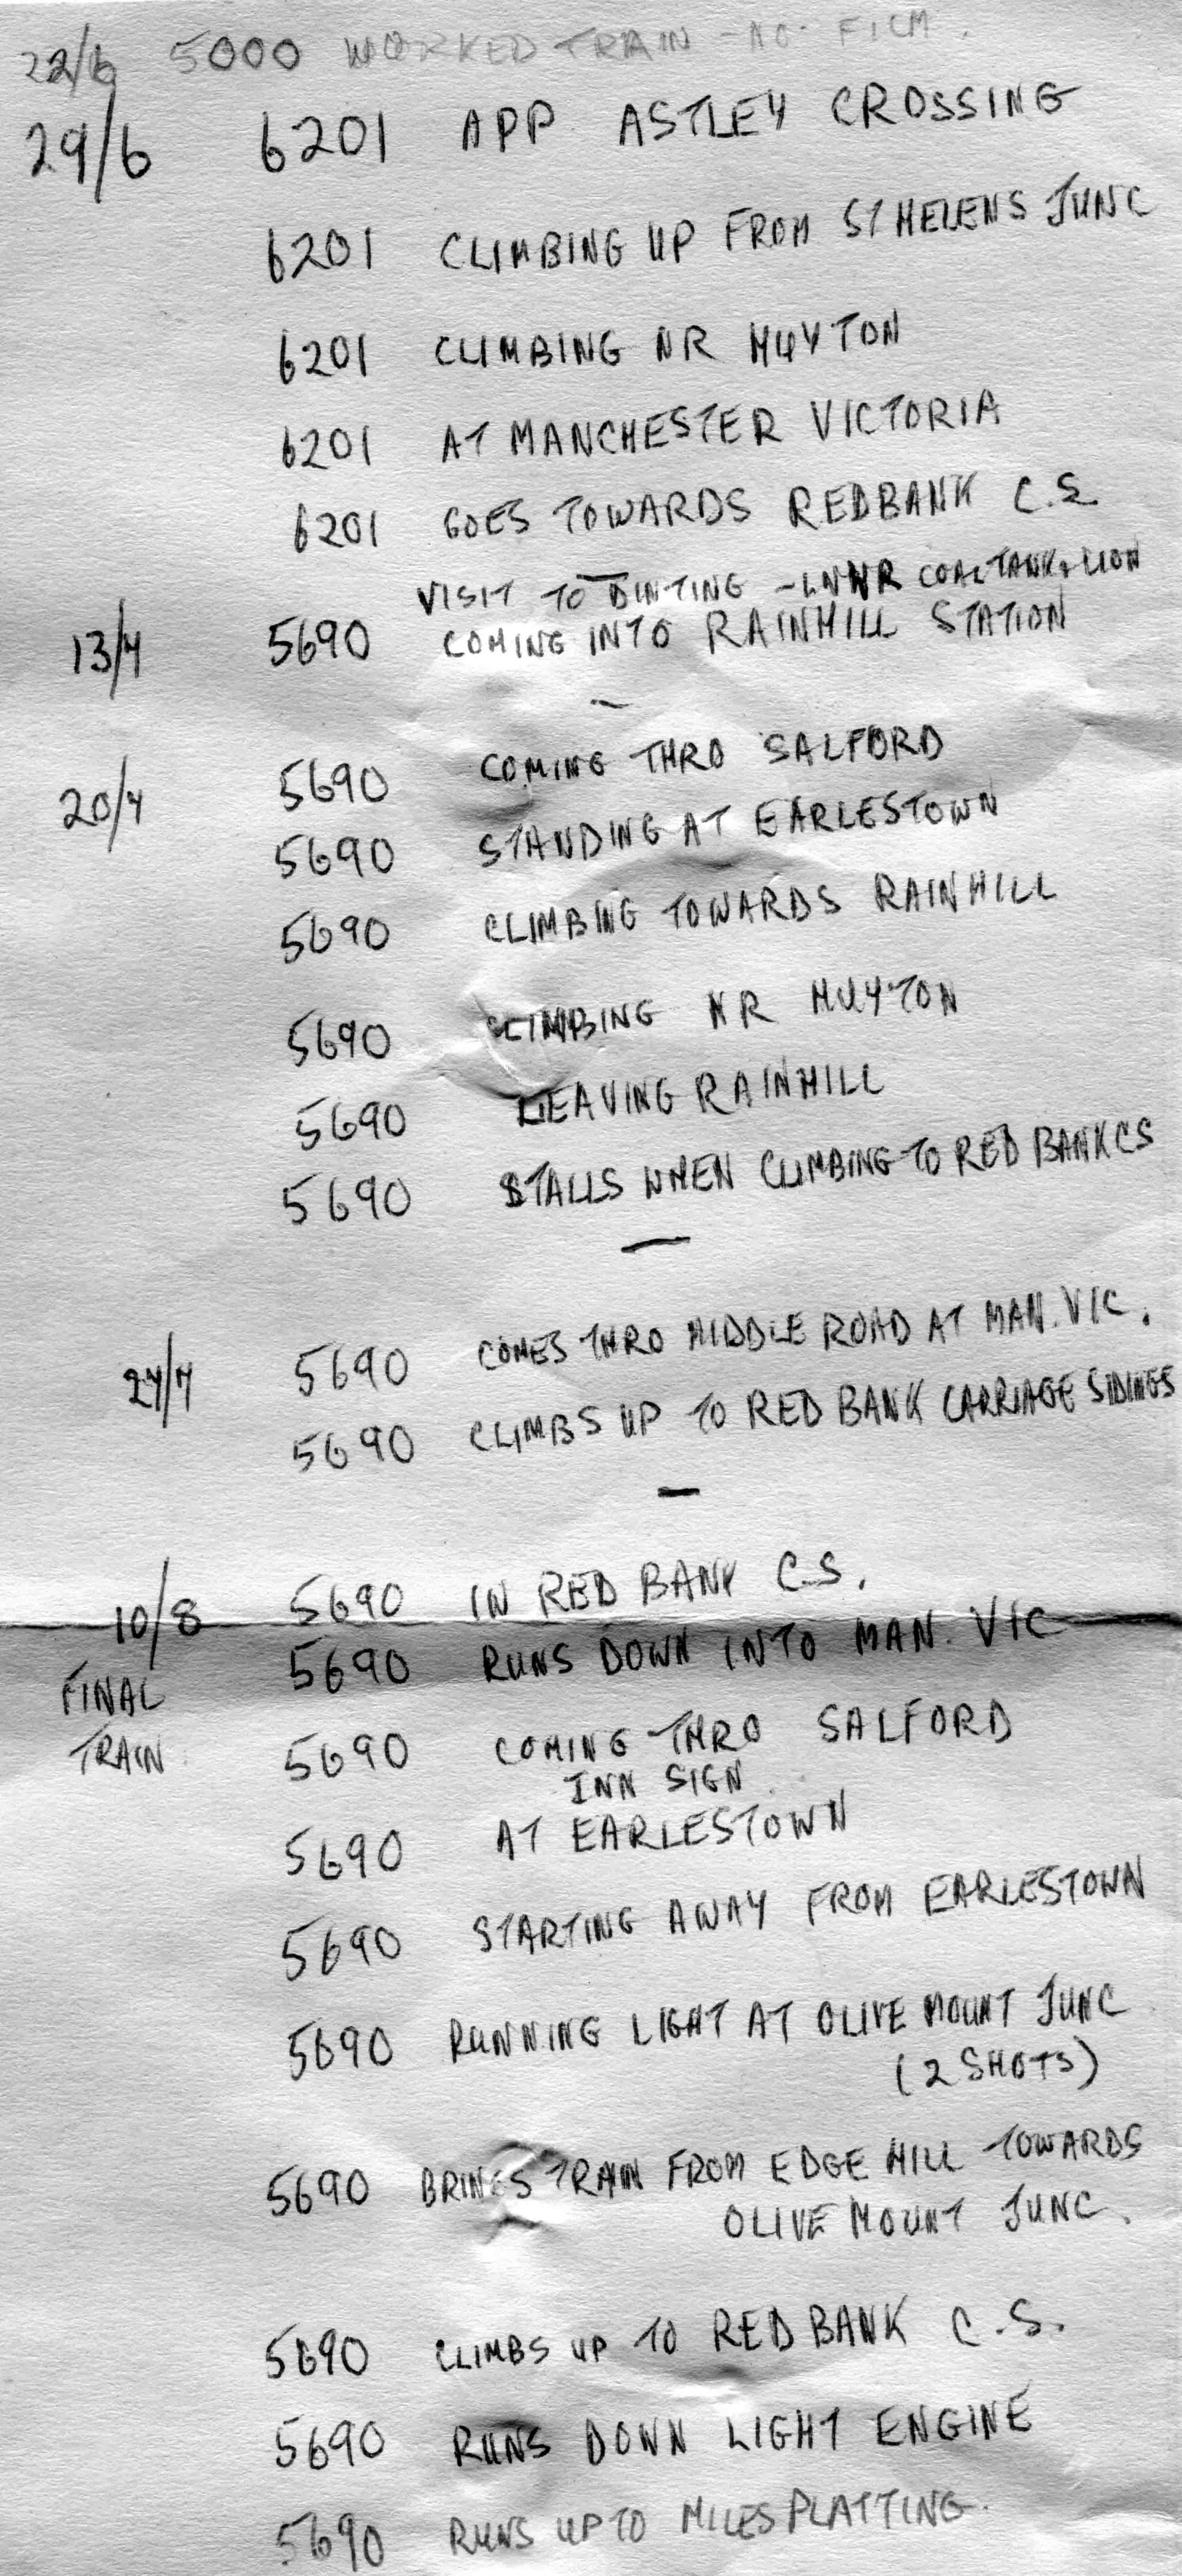 22/6 5000 WORKED TRAIN - NO FILM.
29/6 6201 APP ASTLEY CROSSING
6201 CLIMBING UP FROM ST HELENS JUNC
6201 CLIMBING NR HUYTON
6201 AT MANCHESTER VICTORIA
6201 GOES TOWARDS REDBANK C.S.
VISIT TO DINTING - LNWR COAL TANK & LION
13/7 5690 COMING INTO RAINHILL STATION
20/7 5690 COMING THRO SALFORD
5690 STANDING AT EARLESTOWN
5690 CLIMBING TOWARDS RAINHILL
5690 CLIMBING NR HUYTON
5690 LEAVING RAINHILL
5690 STALLS WHEN CLIMBING TO RED BANK CS
27/7 5690 COMES THRO MIDDLE ROAD AT MAN. VIC.
5690 CLIMBS UP TO RED BANK CARRIAGE SIDINGS
10/8 5690 IN RED BANK C.S.
FINAL 5690 RUNS DOWN INTO MAN. VIC
TRAIN 5690 COMING THRO SALFORD
INN SIGN
5690 AT EARLESTOWN
5690 STARTING AWAY FROM EARLESTOWN
5690 RUNNING LIGHT AT OLIVE MOUNT JUNC
(2 SHOTS)
5690 BRINGS TRAIN FROM EDGE HILL TOWARDS
OLIVE MOUNT JUNC.
5690 CLIMBS UP TO RED BANK C.S.
5690 RUNS DOWN LIGHT ENGINE
5690 RUNS UP TO MILES PLATTING.